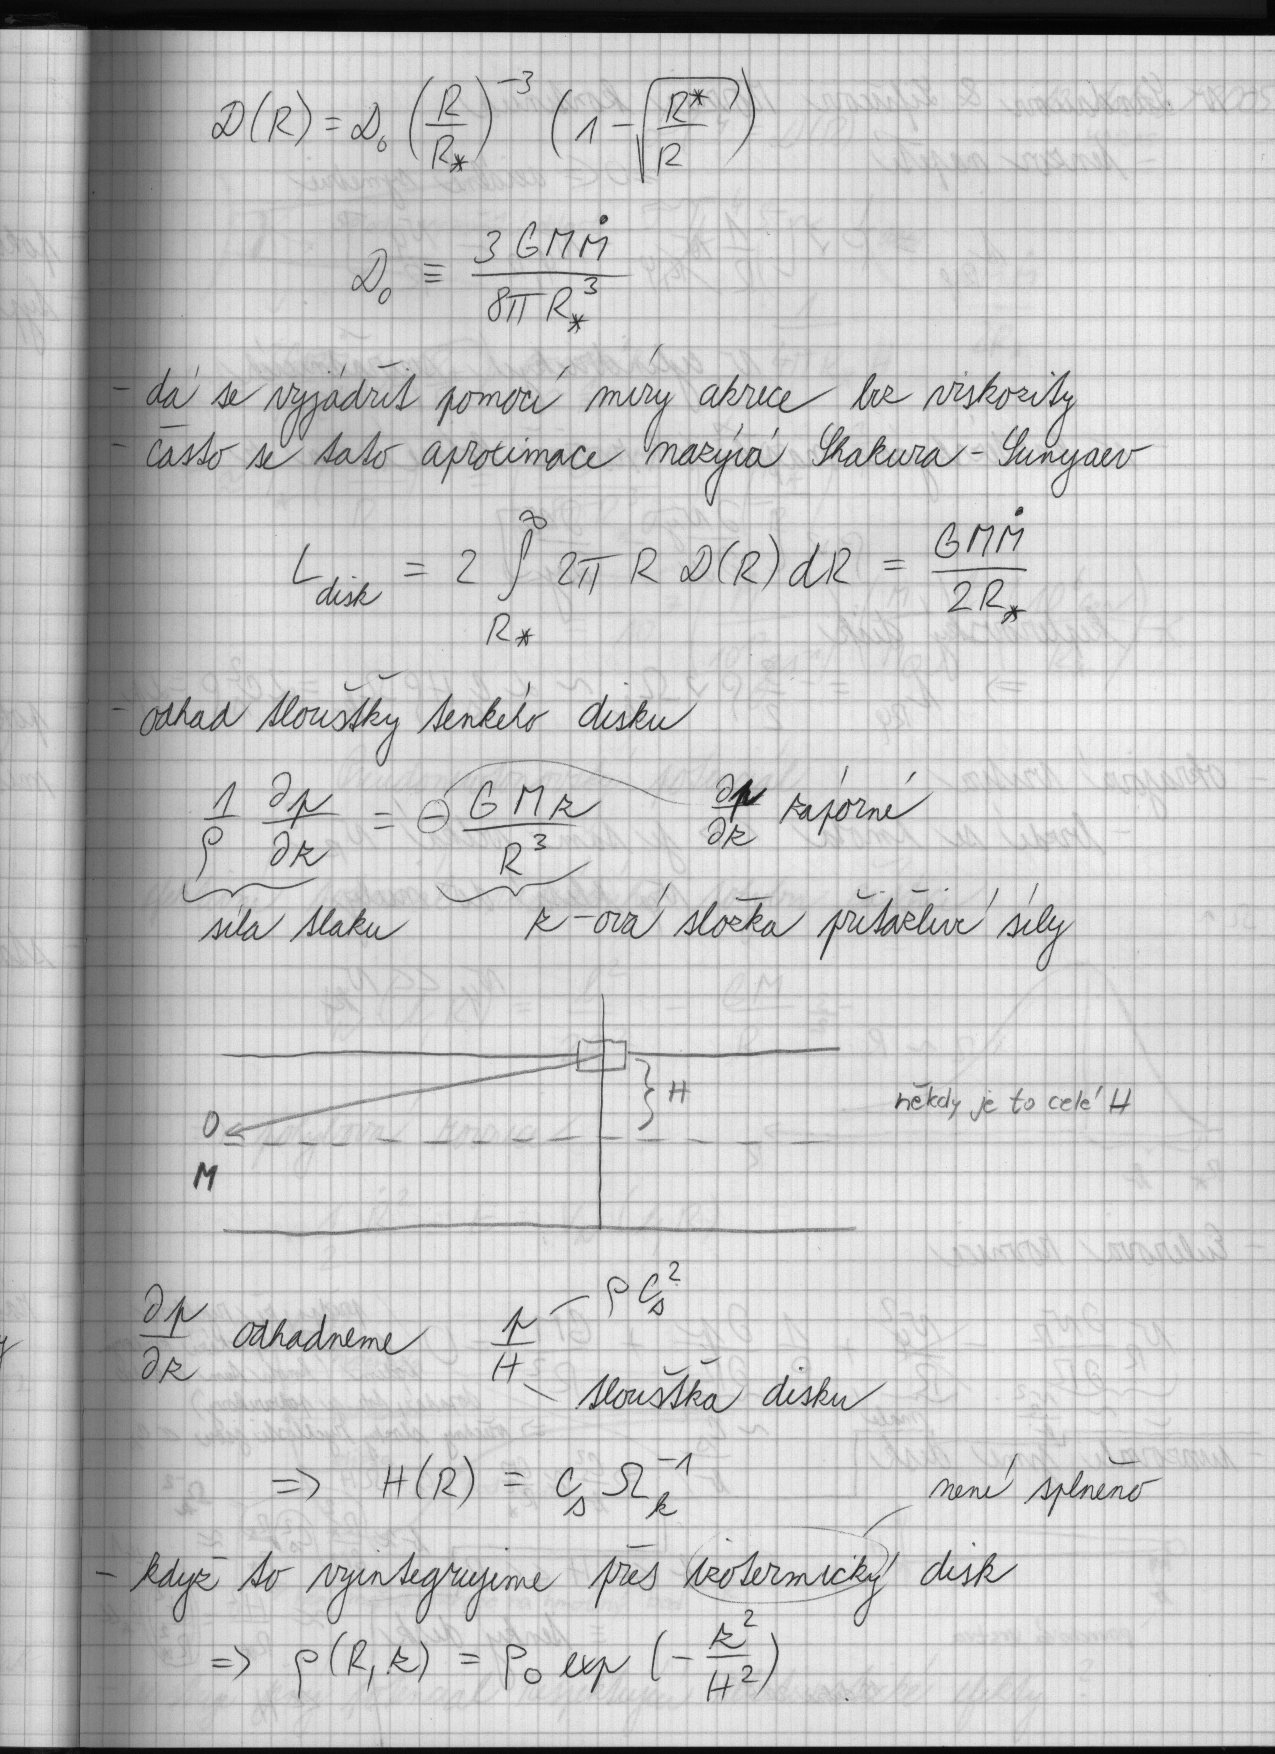 D(R) = D₀ (R/R_*)^{-3} (1 - √(R*/R))
D₀ ≡ 3GMṀ / 8πR_*^3
- dá se vyjádřit pomocí míry akrece bez viskozity
- často se tato aproximace nazývá Shakura - Sunyaev
L_disk = 2 ∫_{R_*}^{∞} 2π R D(R) dR = GMṀ / 2R_*
- odhad tloušťky tenkého disku
1/ρ ∂p/∂z = ⊖ GMz/R^3   ∂p/∂z záporné
síla tlaku   z-ová složka přitažlivé síly
H
někdy je to celé H
O
M
∂p/∂z odhadneme p/H   ρc_s^2
tloušťka disku
=> H(R) = c_s Ω_k^{-1}
není splněno
- když to vyintegrujeme přes izotermický disk
=> ρ(R,z) = ρ₀ exp(-z²/H²)